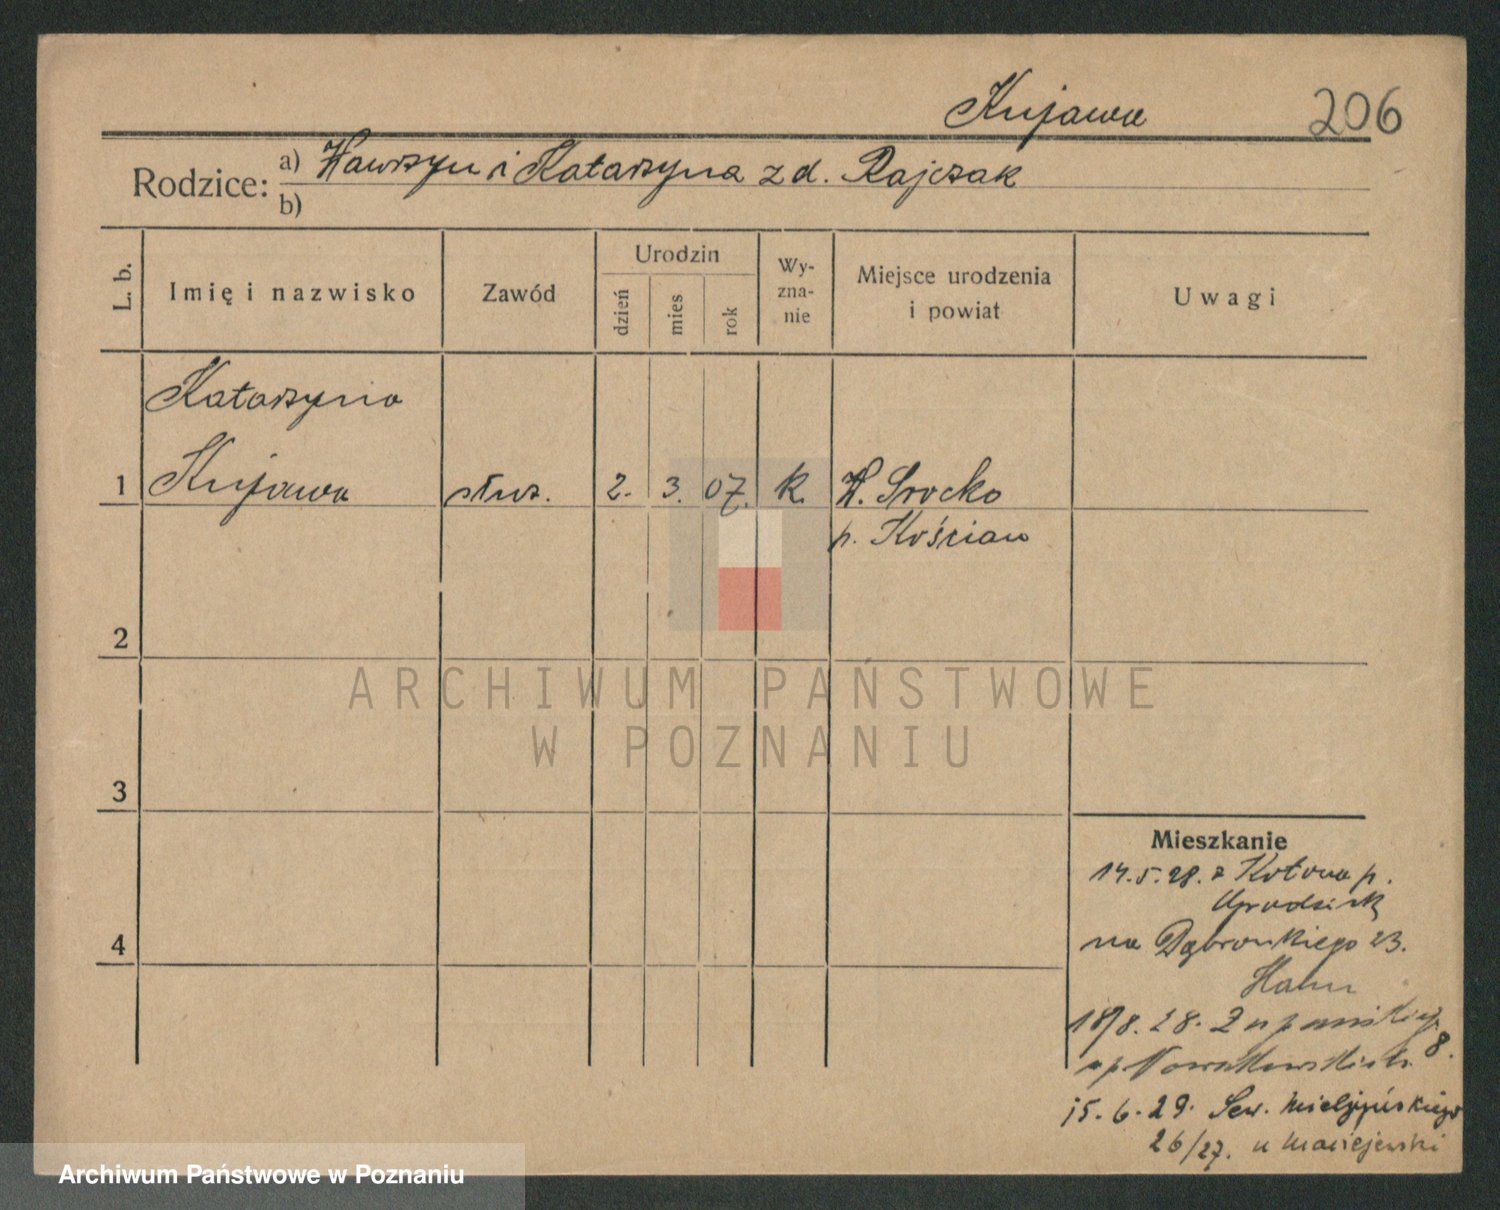 Kujawa 206
Rodzice: a) Wawrzyn i Katarzyna z d. Rajczak
b)
L. b. Imię i nazwisko Zawód Urodzin dzień mies rok Wyznanie Miejsce urodzenia i powiat Uwagi
Katarzyna
1 Kujawa służ. 2. 3. 07. k. W. Srocko
p. Kościan
2
ARCHIWUM PAŃSTWOWE
W POZNANIU
3
Mieszkanie
14.5.28. z Kotowa p.
Grodzisk
na Dąbrowskiego 23.
4
Hahn
18/8. 28. Żupańskiego 8.
15.6.29. Sew. Mielżyńskiego
26/27. u Maciejewski
Archiwum Państwowe w Poznaniu